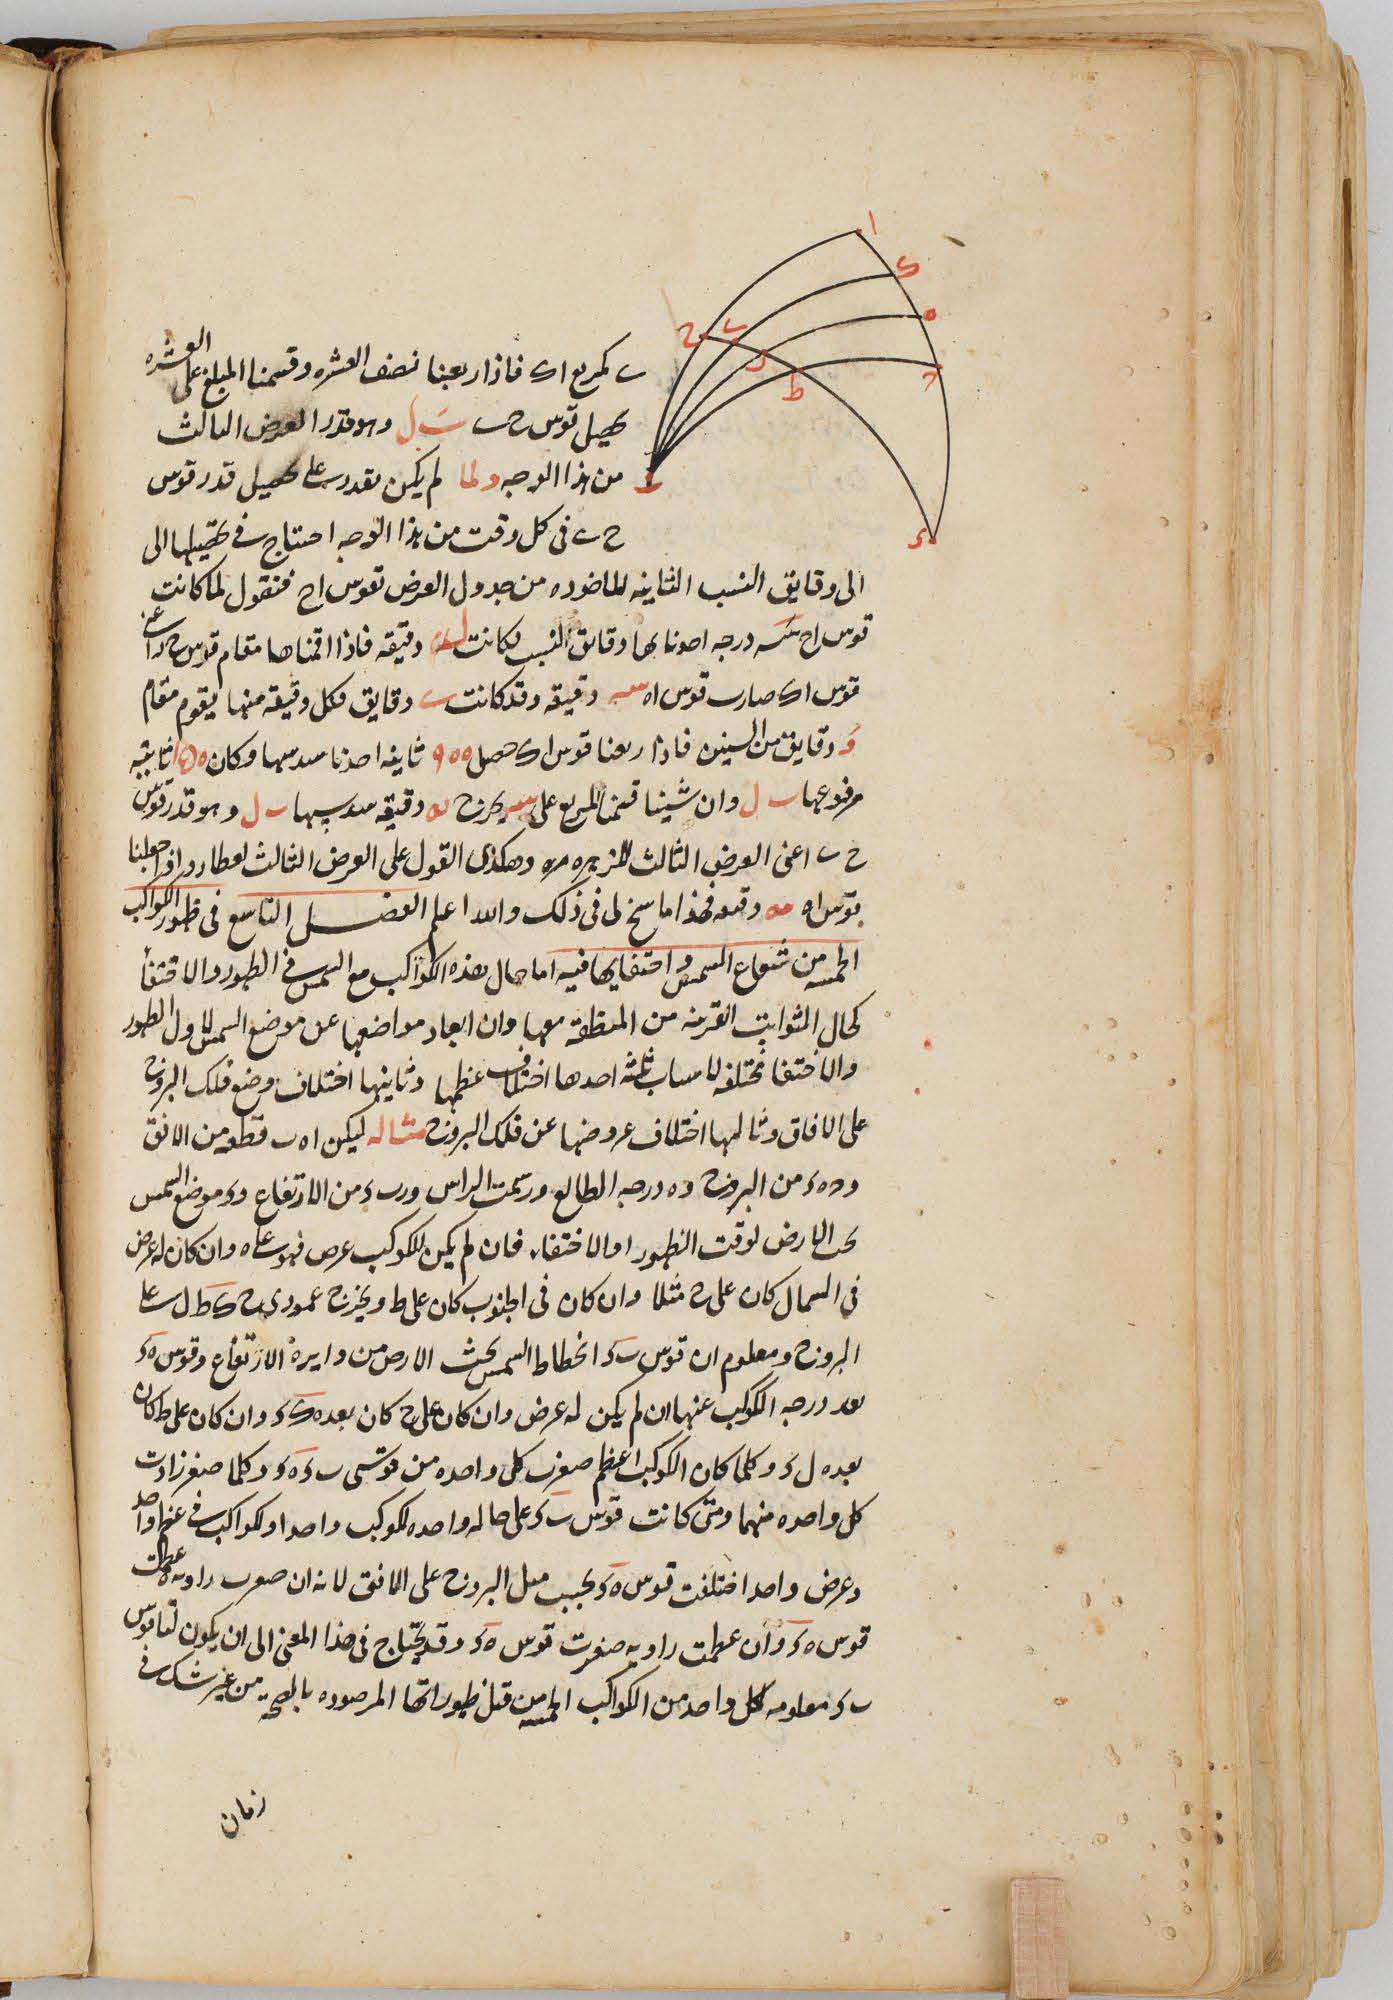 ا
ى
ه
ح
ح
ط
د
كمربع اى فاذا ربعنا نصف العشره وقسمنا المبلغ على العشره
قوس ح ل وهو قدر العرض الثالث
من هذا الوجه ولما لم يكن نقدر على تحصيل قدر قوس
فى كل وقت من هذا الوجه احتاج فى تحصيلها الى
الى دقايق النسب الثانيه الماخوده من جدول العرض بقوس اح فنقول لما كانت
قوس اح درجه اخذنا بها دقايق النسب فكانت دقيقه فاذا اقمناها مقام قوس اعنى
قوس اى صارت قوس اه دقيقه وقد كانت دقايق فكل دقيقه منها يقوم مقام
و دقايق من الستين فاذا ربعنا قوس اى حصل ٩٥٥ ثانيه اخذنا سدسها وكان ثانيه
مرفوعها ل وان شينا قسمنا المربع على يخرج دقيقه سدسها ل وهو قدر قوس
ح اعنى العرض الثالث للزهره وهكذى القول على العرض الثالث لعطارد اذا جعلنا
قوس اه مه دقيقه فهذا ما سنح لى فى ذلك والله اعلم الفصل التاسع فى ظهور الكواكب
الخمسه من شعاع الشمس واختفايها فيه اما حال هذه الكواكب مع الشمس فى الظهور والاختفا
كحال الثوابت القريبه من المنطقه معها وان ابعاد مواضعها عن موضع الشمس لاول الظهور
والاختفا مختلفه لاسباب ثلثه احدها اختلاف عظمها وثانيها اختلاف وضع فلك البروج
على الافاق وثالثها اختلاف عروضها عن فلك البروج مثاله ليكن اه ب قطعه من الافق
وده من البروج وه درجه الطالع ورسمت الراس ورب من الارتفاع ود موضع الشمس
تحت الارض لوقت الظهور او الاختفاء فان لم يكن للكوكب عرض فهو على ه وان كان له عرض
فى الشمال كان على ح مثلا وان كان فى الجنوب كان على ط ويخرج عمودى ح ك ط ل على
البروج ومعلوم ان قوس ب د انحطاط الشمس تحت الارض من دايرة الارتفاع وقوس ه د
بعد درجه الكوكب عنها ان لم يكن له عرض وان كان على ح كان بعده ك د وان كان على ط كان
بعده ل د وكلما كان الكوكب اعظم صغرت كل واحده من قوسى ب د ه د وكلما صغر زادت
كل واحده منهما ومتى كانت قوس ب د على حاله واحده لكوكب واحد او لكواكب فى عظم واحد
وعرض واحد اختلفت قوس ه د بحسب ميل البروج على الافق لانه ان صغرت زاويه عظمت
قوس ه د وان عظمت زاويه صغرت قوس ه د وقد يحتاج فى هذا المعنى الى ان يكون لنا قوس
ب د معلومه لكل واحد من الكواكب الخمسه من قبل ظهوراتها المرصوده بالصحه من غير شك فى
زمان